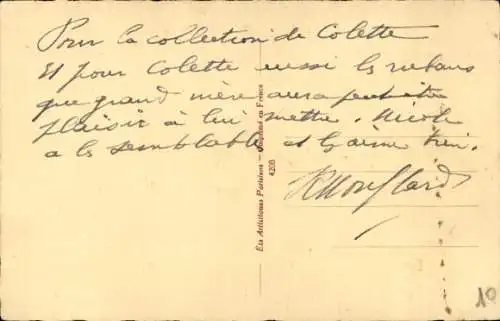 Pour la collection de Colette
Et pour Colette aussi les rubans
que grand mère aura peut etre
plaisir à lui mettre. Nicole
a les semblables et les aime bien.
Eds Artistiques Parisiens - Imprimé en France
4208
10